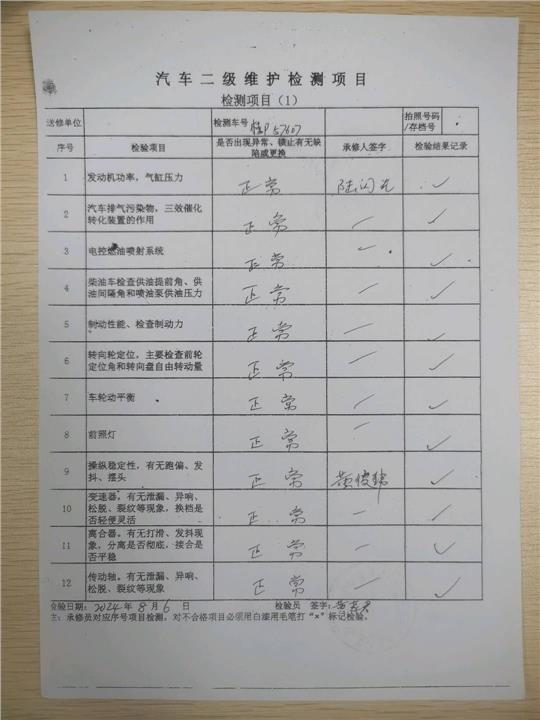 汽车二级维护检测项目
检测项目（1）
送修单位 检测车号 桂P57607 拍照号码/存档号
序号 检验项目 是否出现异常、锁止有无缺陷或更换 承修人签字 检验结果记录
1 发动机功率，气缸压力 正常 ✓
2 汽车排气污染物，三效催化
转化装置的作用 正常 — ✓
3 电控燃油喷射系统 正常 — ✓
4 柴油车检查供油提前角、供
油间隔角和喷油泵供油压力 正常 — ✓
5 制动性能、检查制动力 正常 — ✓
6 转向轮定位，主要检查前轮
定位角和转向盘自由转动量 正常 — ✓
7 车轮动平衡 正常 — ✓
8 前照灯 正常 — ✓
9 操纵稳定性，有无跑偏、发
抖、摆头 正常 ✓
10 变速器。有无泄漏、异响、
松脱、裂纹等现象，换档是
否轻便灵活 正常 — ✓
11 离合器。有无打滑、发抖现
象，分离是否彻底，接合是
否平稳 正常 — ✓
12 传动轴。有无泄漏、异响、
松脱、裂纹等现象 正常 — ✓
检验日期：2024年8月6日 检验员 签字：
注：承修员对应序号项目检测，对不合格项目必须用白漆用毛笔打“×”标记检验。